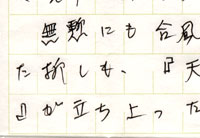 無慙にも台風
た折しも、『天
』が立ち上った